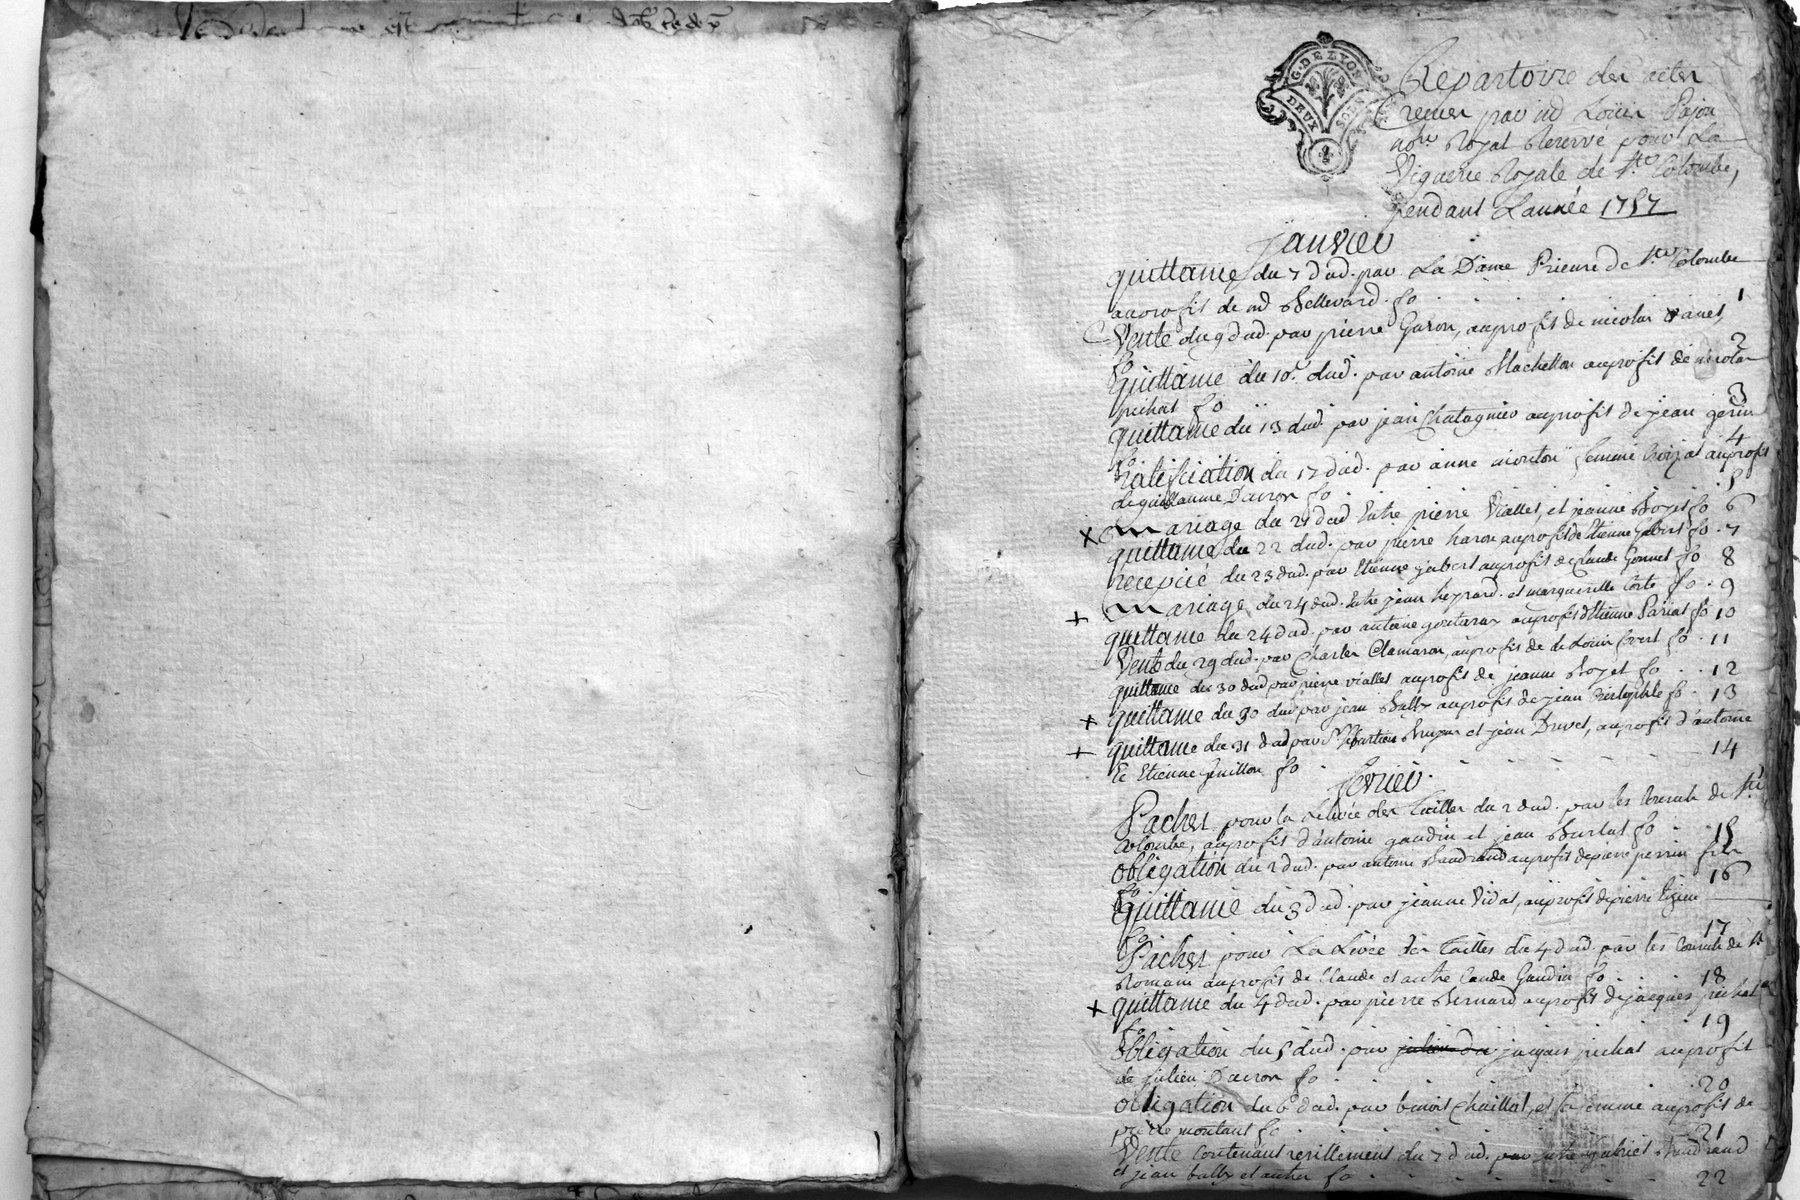 G. DE LYON
DEUX SOLS
Repartoire des actes
receus par md Loüis Pajon
nore Royal Reservé pour La
Viguerie Royale de Ste Colombe,
pendant L'année 1757
janvier
quittance du 7 dud. par La Dame Prieure de Ste Colombe
auprofit de md Bellevard fo 1
Vente du 9 dud. par pierre Garon, auprofit de nicolas
fo 2
quittance du 10e dud. par antoine Machellon auprofit de nicolas
pichat fo 3
quittance du 13 dud. par jean Chatagnier auprofit de jean gerin
fo 4
ratification du 17 dud. par anne mouton femme auprofit
de guillaume Daeron fo 5
x mariage du 21 dud Entre pierre Vialles, et jeanne Boyet fo 6
quittance du 22 dud. par pierre haron auprofit de Etienne jabert fo 7
recepicé du 23 dud. par Etienne jabert auprofit de Claude Gonnet fo 8
+ mariage du 24 dud. Entre jean heyrard et margueritte Corte fo 9
quittance du 24 dud. par antoine auprofit d'Etienne Pariat fo 10
Vente du 29 dud. par Charles Clamaron, auprofit de Loüis fo 11
quittance du 30 dud par pierre vialles auprofit de jeanne Boyet fo 12
+ quittance du 30 dud par jean Bally auprofit de jean fo 13
+ quittance du 31 dud par Sébastien et jean Duvet, auprofit d'antoine
Et Etienne Guillon fo 14
fevrier
Paches pour la Levée des Tailles du 2 dud. par les Consuls de Ste
Colombe, auprofit d'antoine gaudin et jean Burlat fo 15
obligation du 2 dud. par antoine Baudrand auprofit de pierre perrin fils
fo 16
quittance du 3 dud. par jeanne Vidal, auprofit de pierre
fo 17
Paches pour La Levée des Tailles du 4 dud. par les Consuls de St
Romain auprofit de Claude et autre Claude Gaudin fo 18
+ quittance du 4 dud. par pierre Bernard auprofit de jacques pichat
fo 19
obligation du 5 dud. par jacques pichat auprofit
de julien Daeron fo 20
obligation du 6 dud. par benoit Chaillot, et sa femme auprofit de
pierre montant fo 21
Vente Contenant resillement du 7 dud. par Entre gabriel Baudrand
et jean bally et autres fo 22